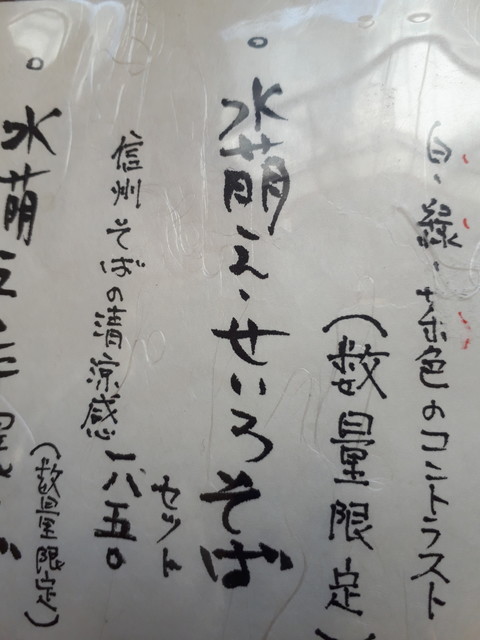 白、緑、茶色のコントラスト
(数量限定)
水萌え・せいろそば
セット
信州そばの清涼感 一八五〇
水萌
(数量限定)